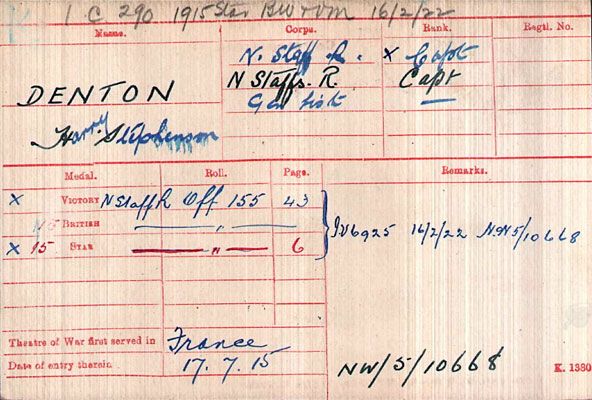 1 C 290 1915 Star BW & VM 16/2/22
Name. Corps. Rank. Regtl. No.
N. Staff R. X Capt
DENTON N Staffs. R. Capt
Gen List —
Harry Stephenson
Medal. Roll. Page. Remarks.
X VICTORY N Staff R Off 155 43
BRITISH — " —
X 15 STAR — " — 6
IV6925 16/2/22 NW5/10668
Theatre of War first served in France
Date of entry therein 17.7.15
NW/5/10668 K. 1380